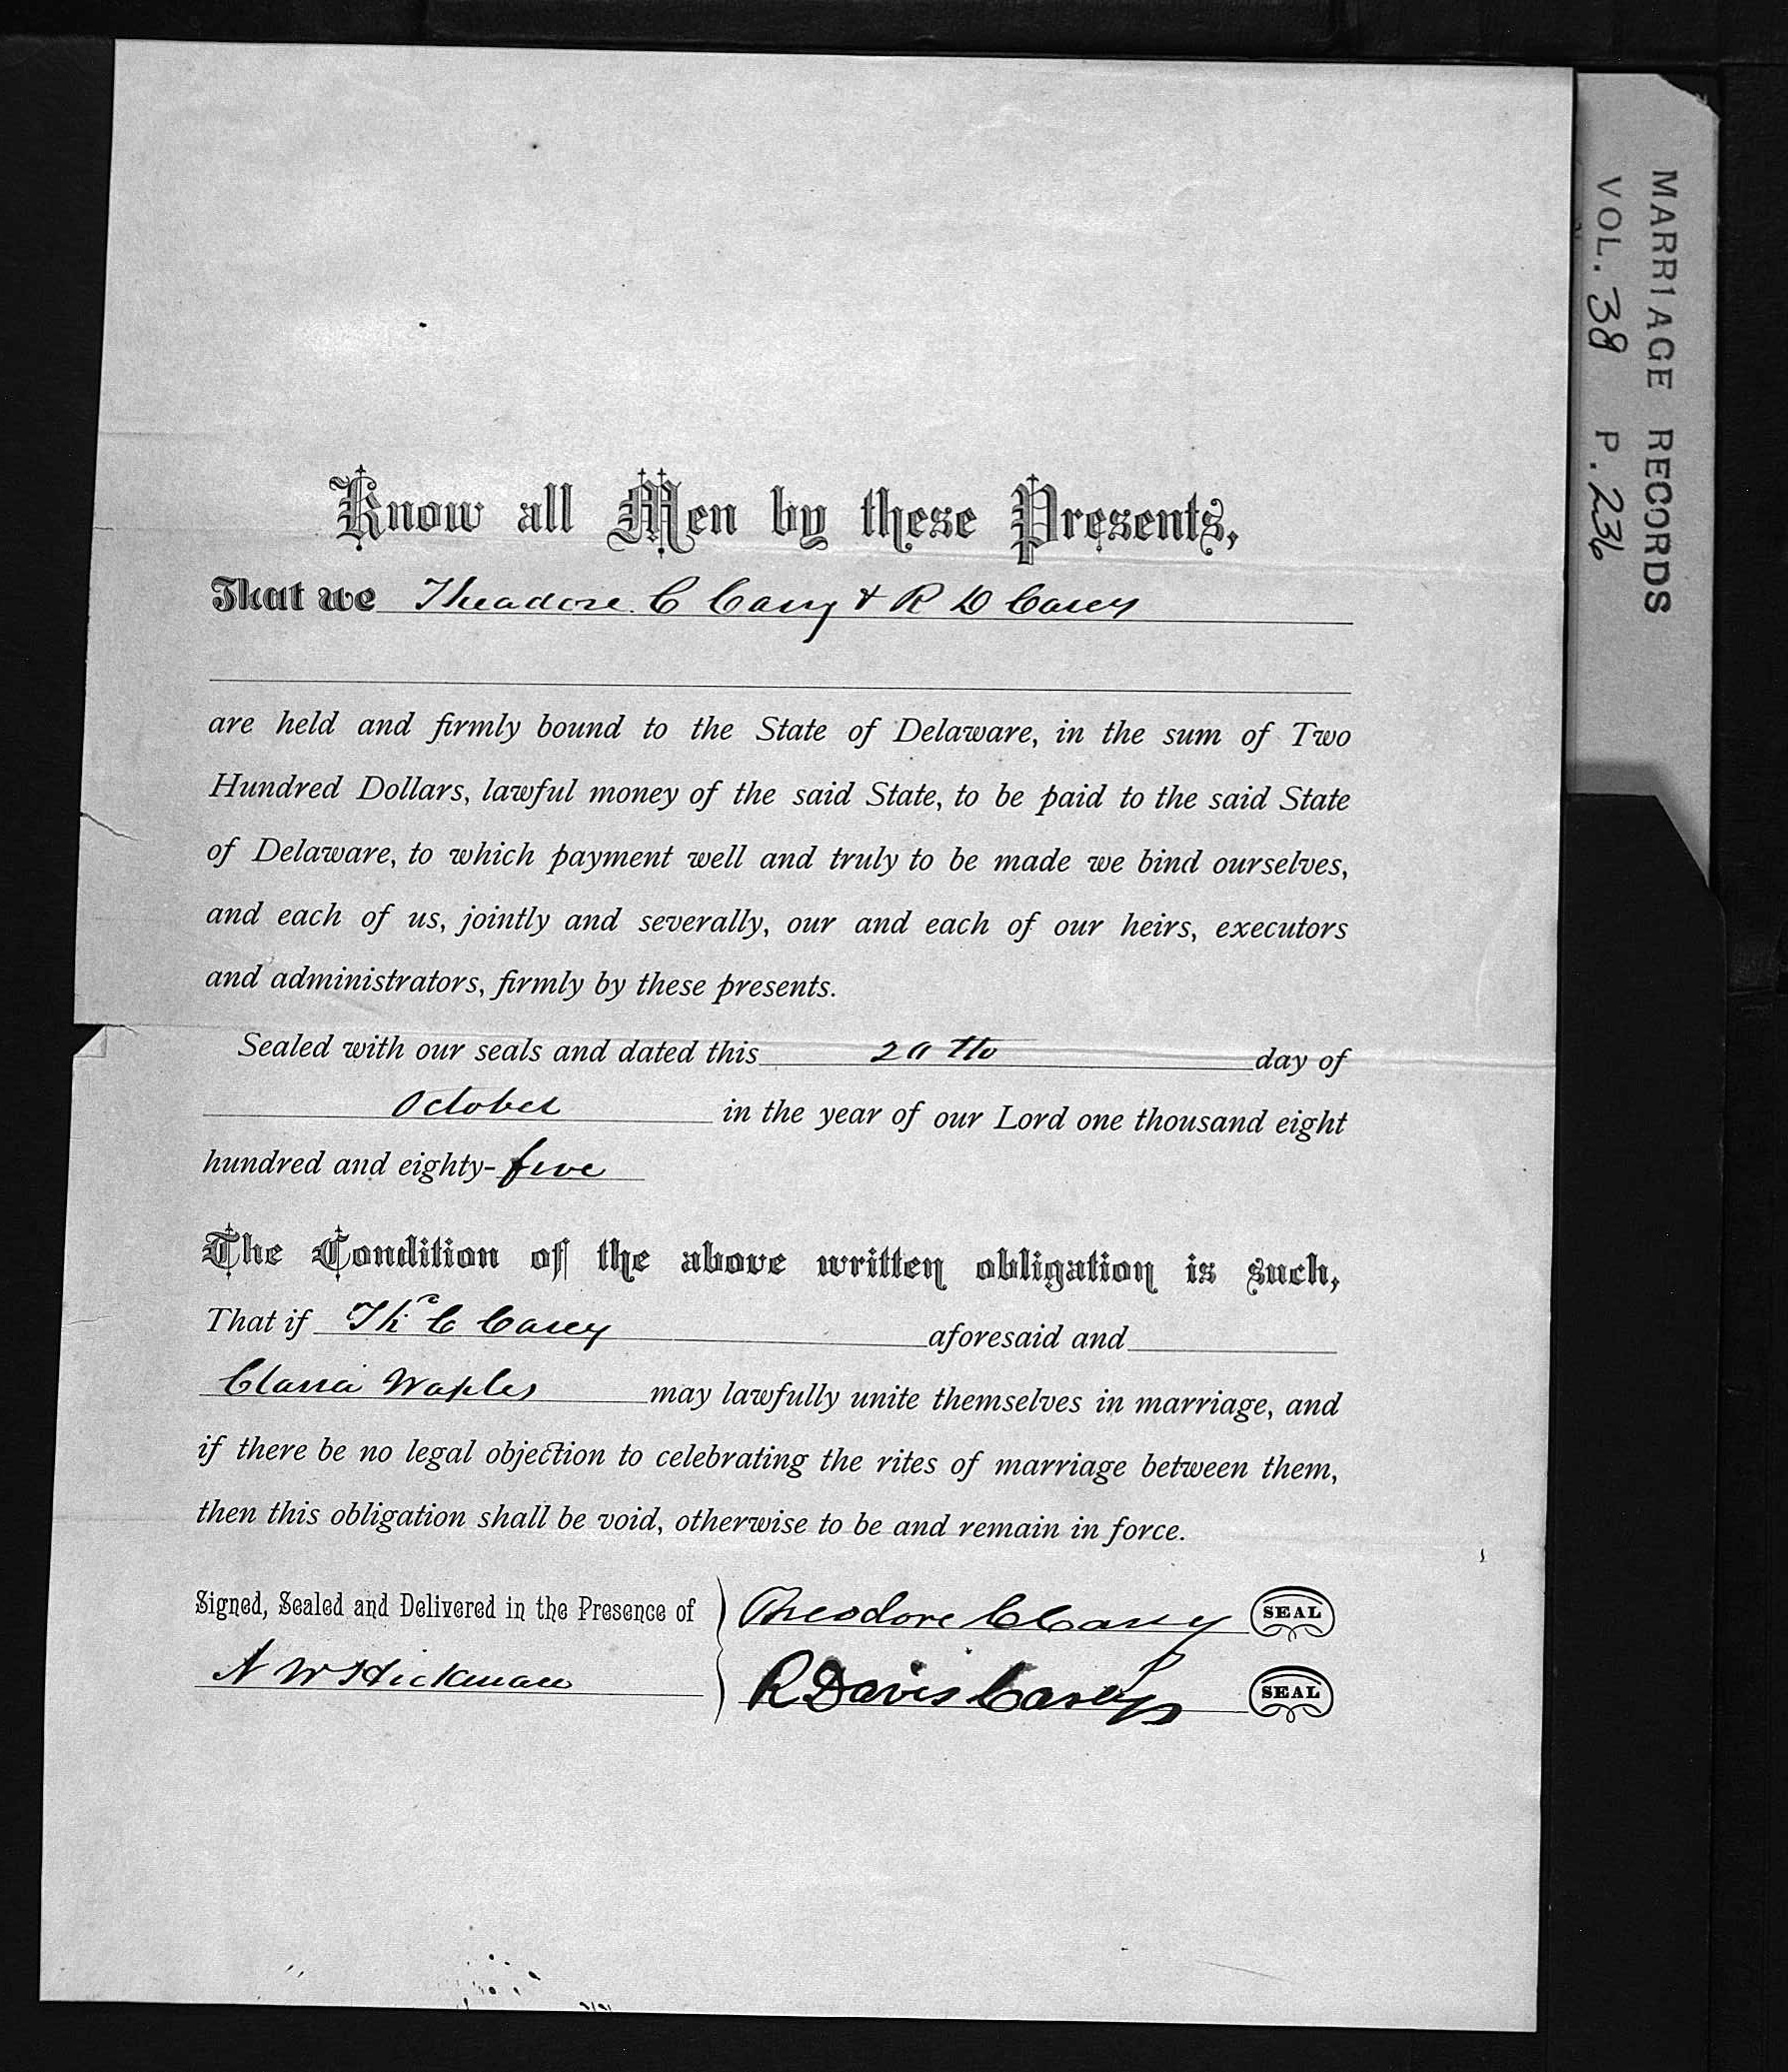 MARRIAGE RECORDS
VOL. 38 P. 236
Know all Men by these Presents,
That we Theadore C Carey & R D Carey
are held and firmly bound to the State of Delaware, in the sum of Two
Hundred Dollars, lawful money of the said State, to be paid to the said State
of Delaware, to which payment well and truly to be made we bind ourselves,
and each of us, jointly and severally, our and each of our heirs, executors
and administrators, firmly by these presents.
Sealed with our seals and dated this day of
October in the year of our Lord one thousand eight
hundred and eighty-five
The Condition of the above written obligation is such,
That if C Carey aforesaid and
Clara Waples may lawfully unite themselves in marriage, and
if there be no legal objection to celebrating the rites of marriage between them,
then this obligation shall be void, otherwise to be and remain in force.
Signed, Sealed and Delivered in the Presence of Theodore C Carey SEAL
W Hickman R Davis Carey SEAL